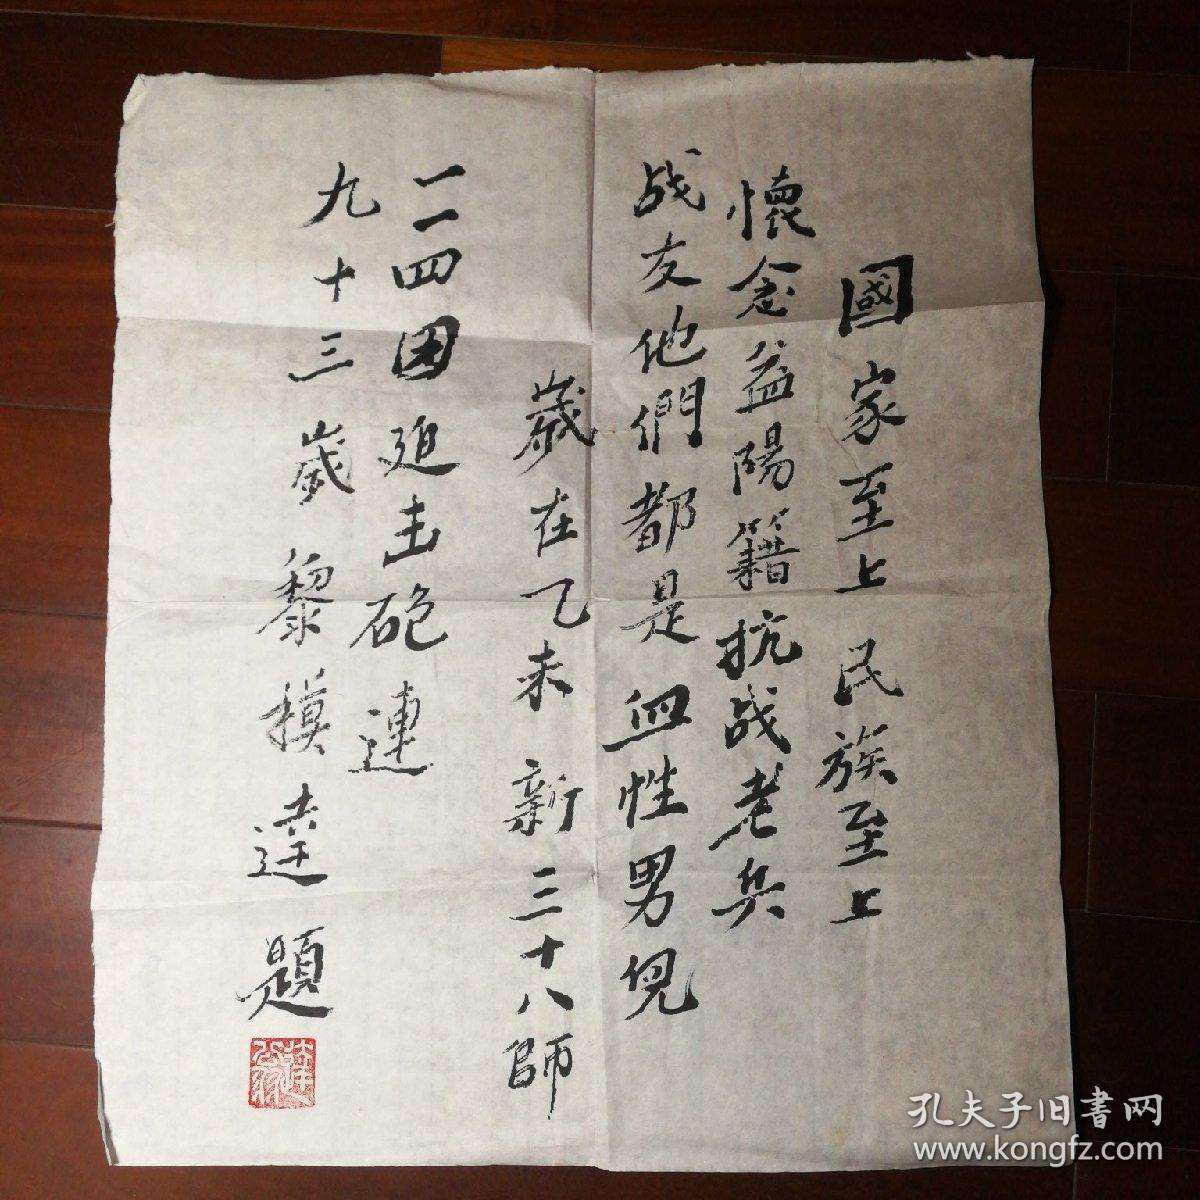 國家至上民族至上
懷念益陽籍抗战老兵
战友他們都是血性男児
歲在乙未新三十八師
一一四团迫击砲連
九十三歲黎模達題
孔夫子旧書网
www.kongfz.com